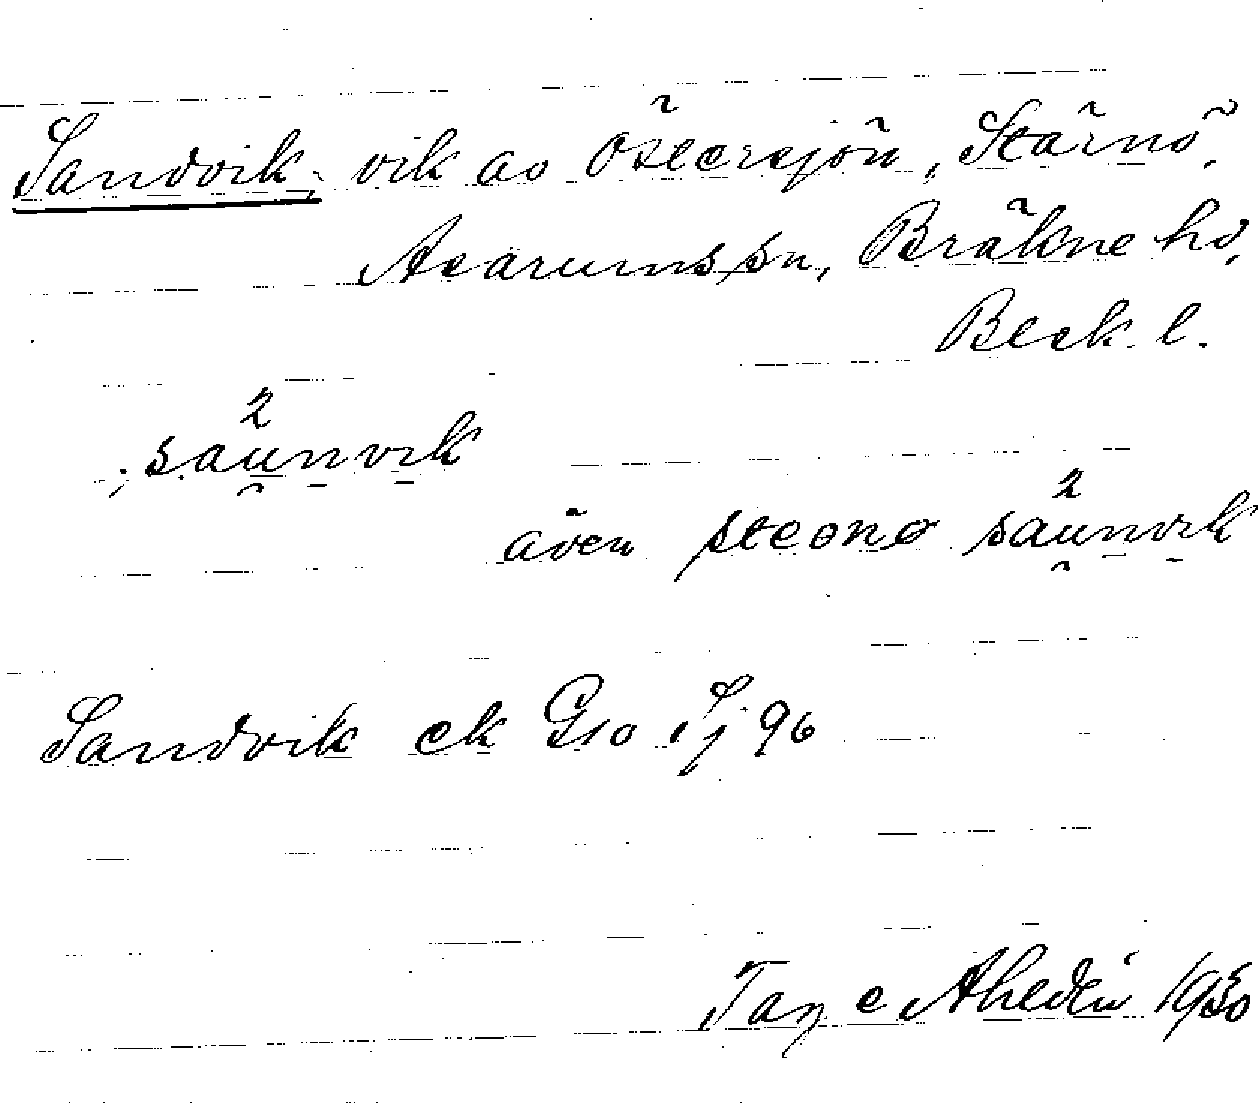 Sandvik, vik av Östersjön, Stärnö,
Asarums sn, Bräkne hd,
Blek. l.
; saunvik
även steonø saunvik
Sandvik ek G10 Sj 96
Tage Ahldén 1950